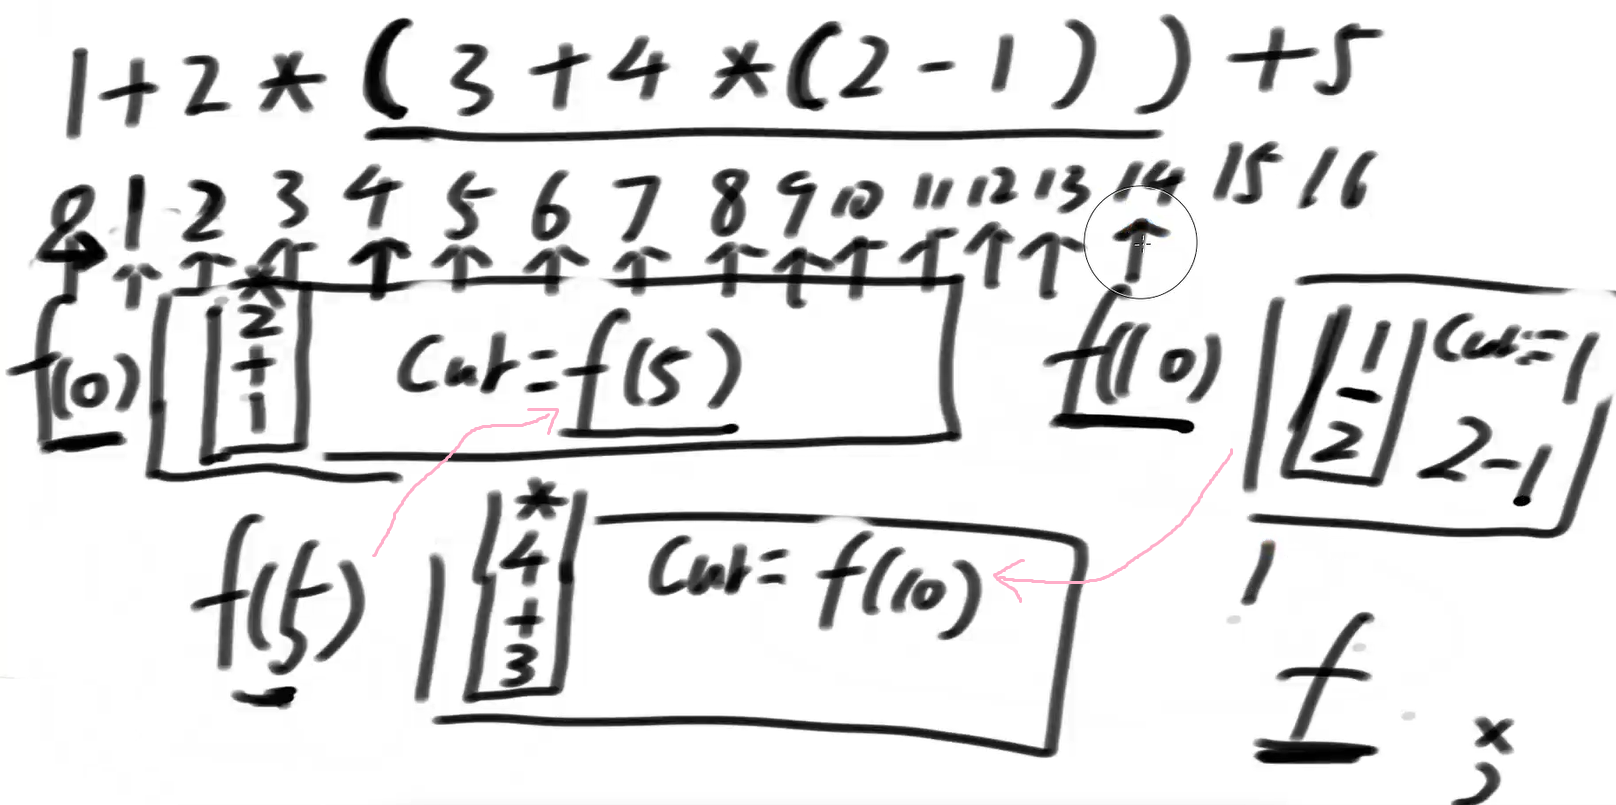 1+2*(3+4*(2-1))+5
0 1 2 3 4 5 6 7 8 9 10 11 12 13 14 15 16
f(0)
*
2
+
1
Cur=f(5)
f(10)
1
-
2
Cur=1
2-1
f(5)
*
4
+
3
Cur=f(10)
1
f
*